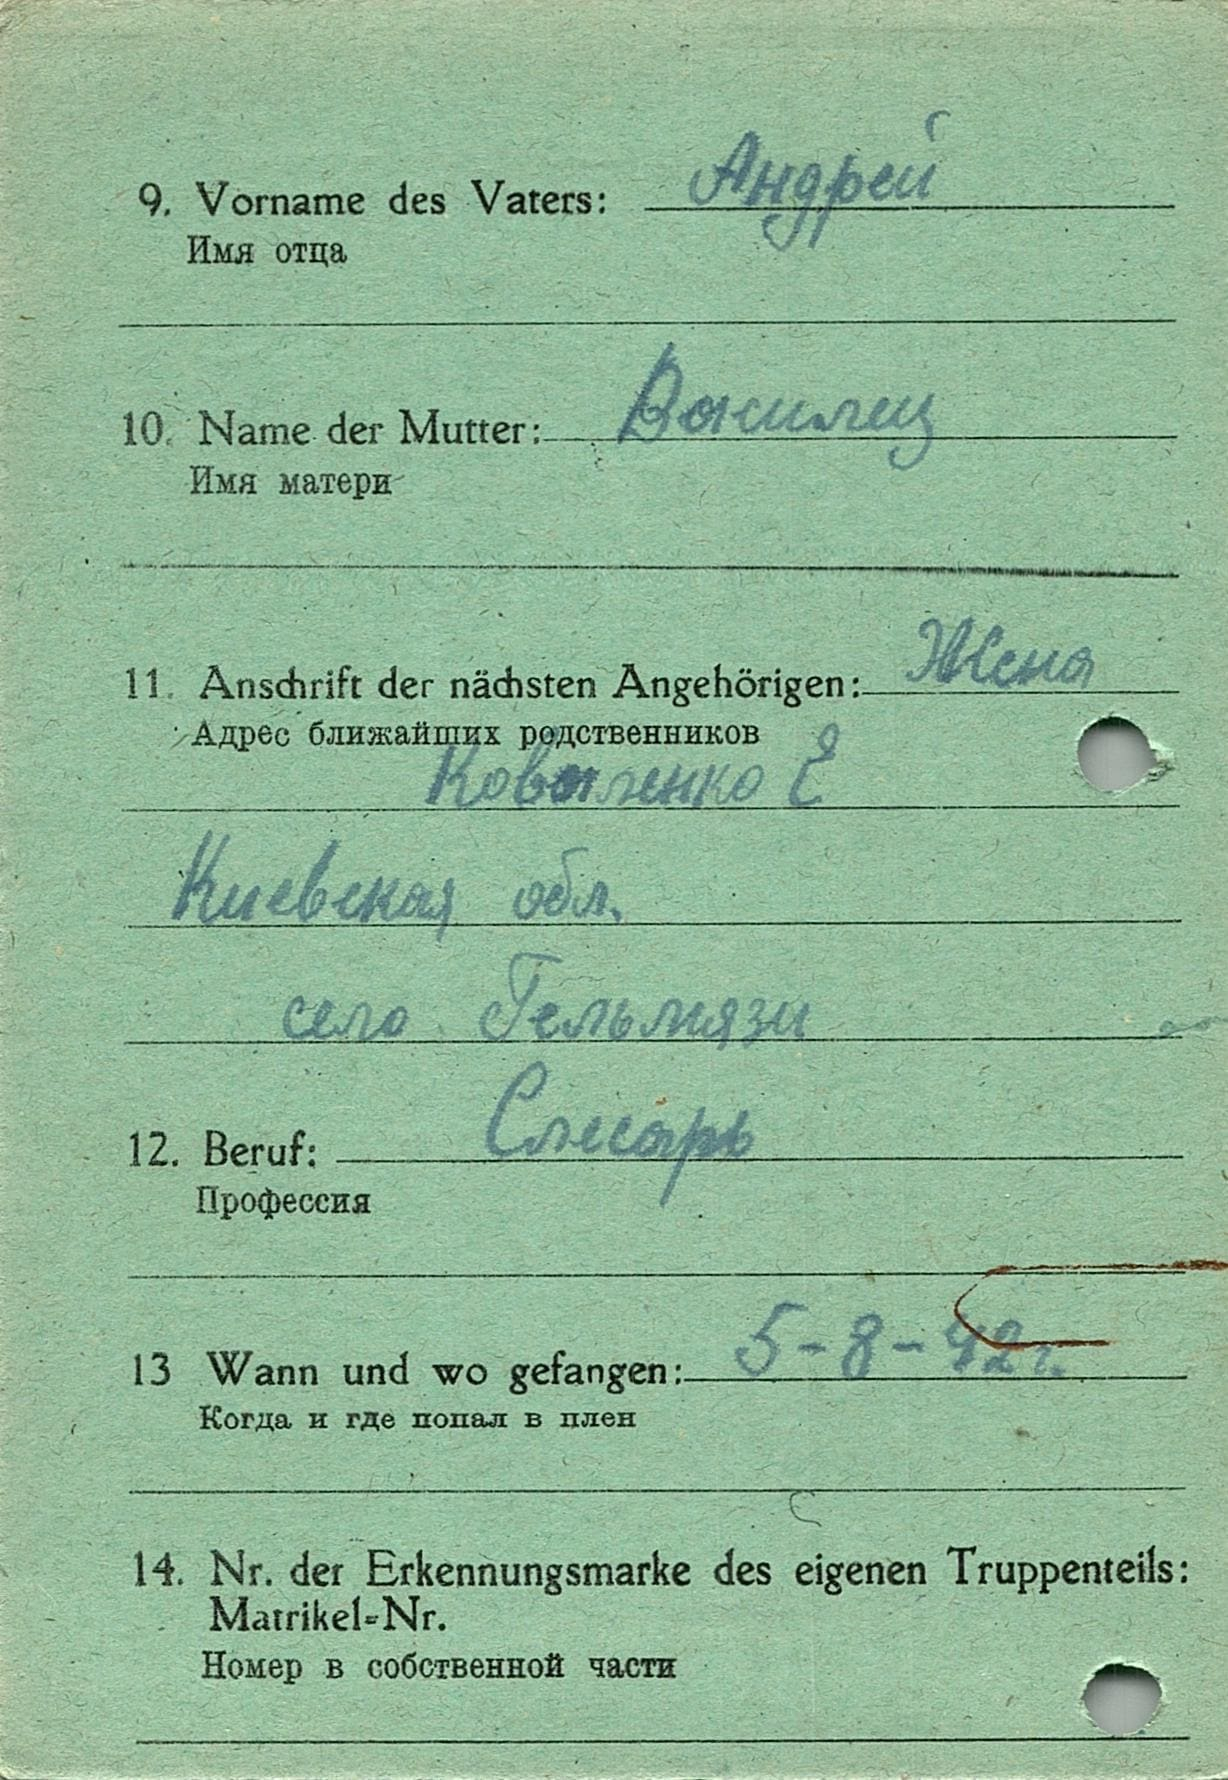 9. Vorname des Vaters: Андрей
Имя отца
10. Name der Mutter:
Имя матери
11. Anschrift der nächsten Angehörigen: Жена
Адрес ближайших родственников
Коваленко Е
Киевская обл.
село Гельмязи
12. Beruf: Слесарь
Профессия
13 Wann und wo gefangen: 5-8-42 г.
Когда и где попал в плен
14. Nr. der Erkennungsmarke des eigenen Truppenteils:
Matrikel-Nr.
Номер в собственной части